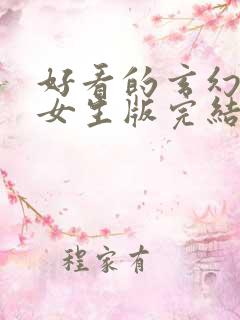 好看的玄幻
女生版完结
程家有